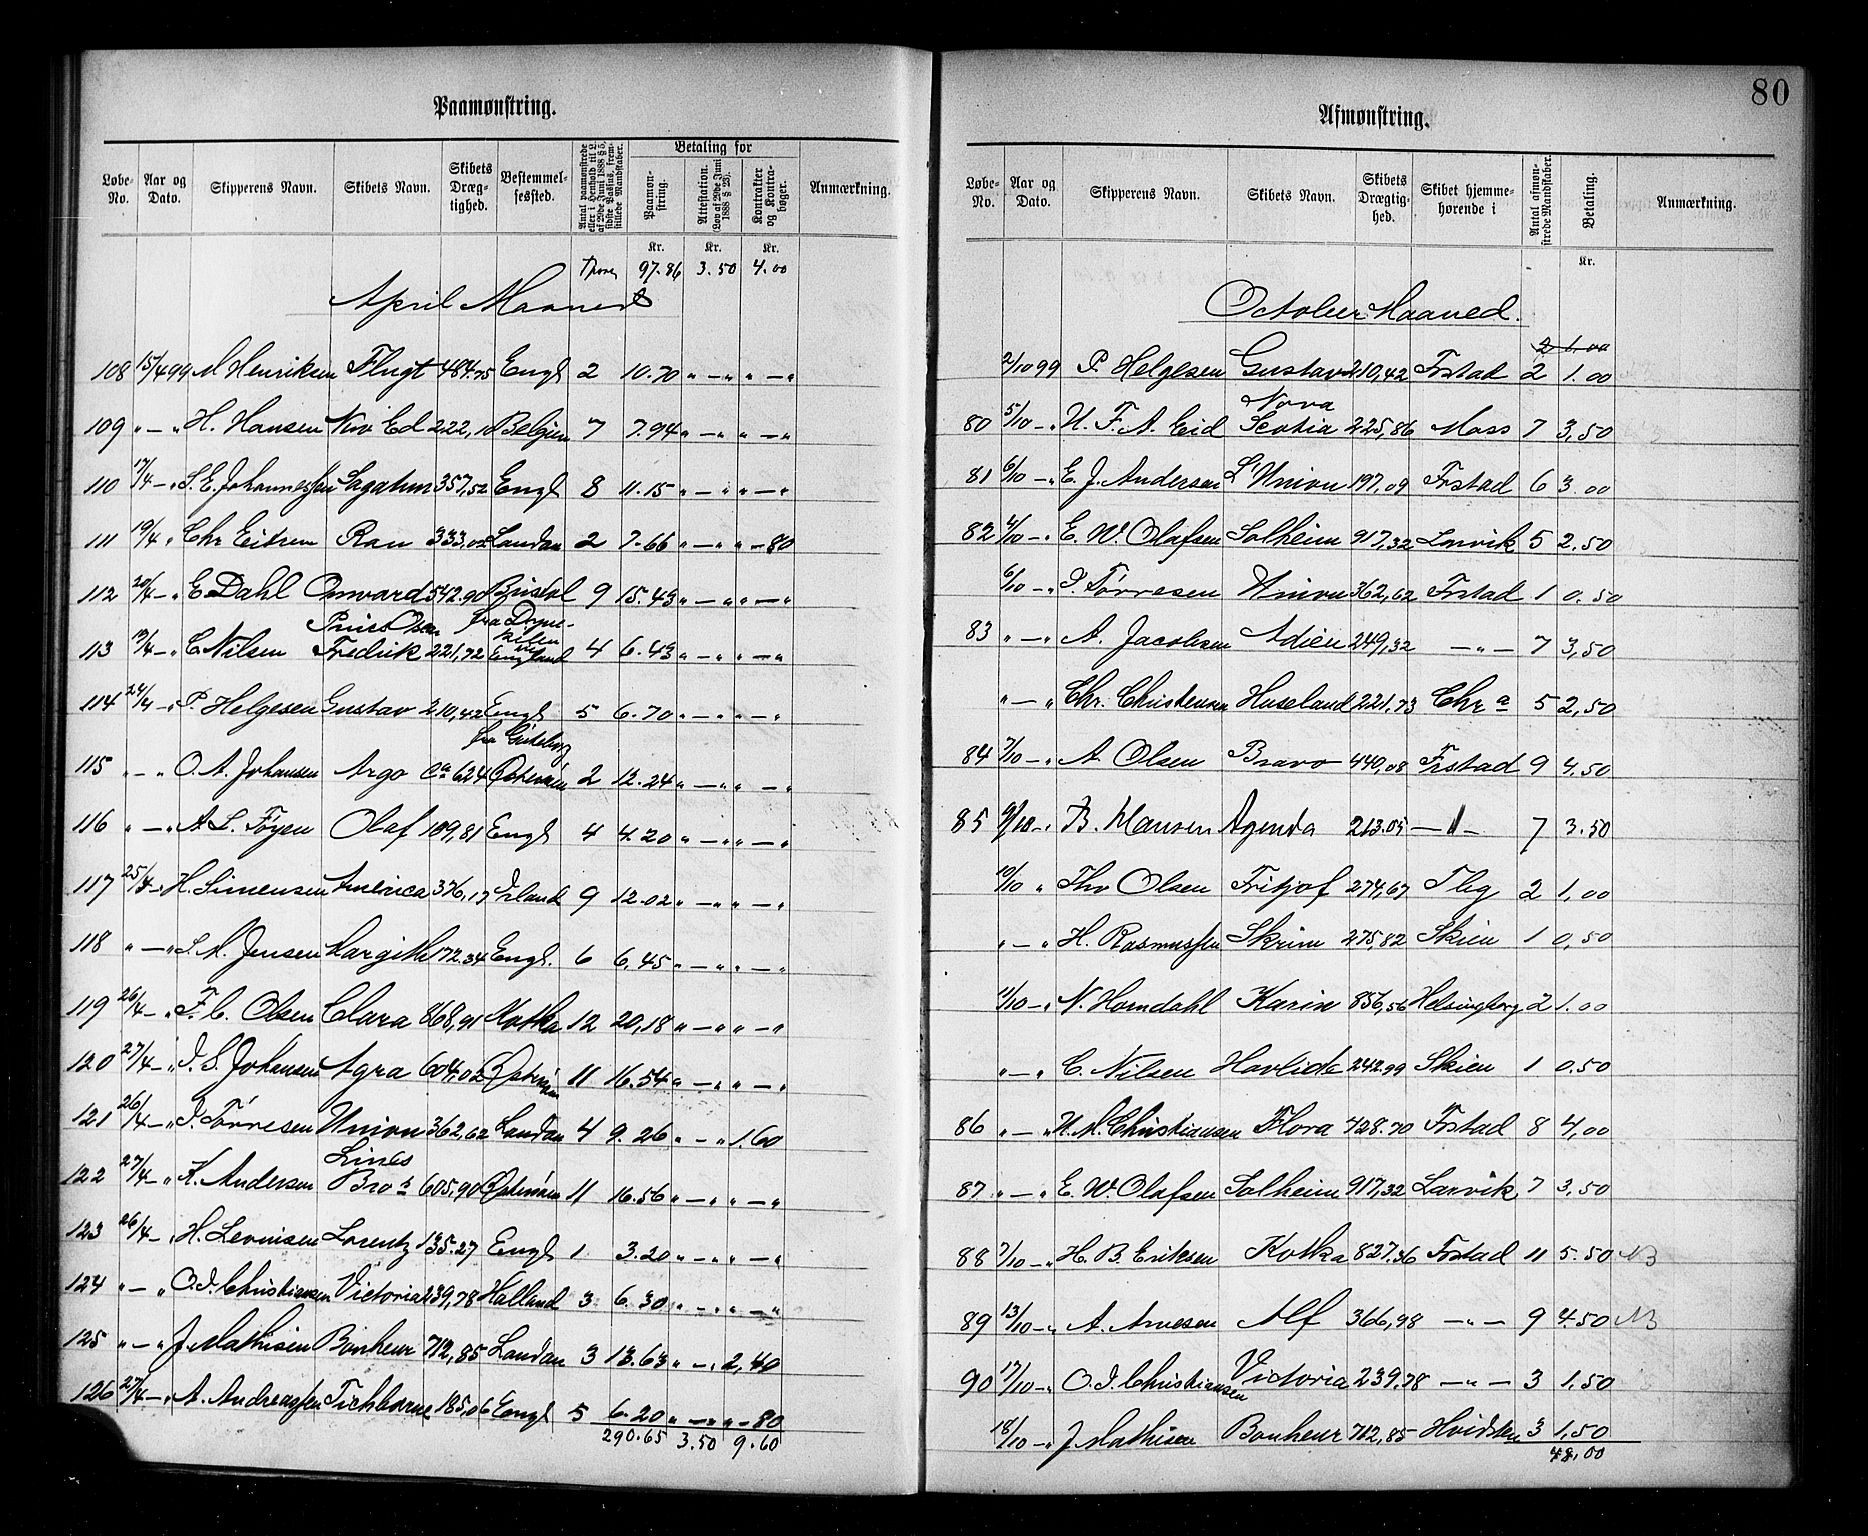 80
Paamønstring.
Løbe-No. Aar og Dato. Skipperens Navn. Skibets Navn. Skibets Dræg-tighed. Bestemmel-sessted. Antal paamønstrede eller i Henhold til L. af 29de Juni 1888 § 5, sidste Passus, frem-stillede Mandskaber. Betaling for Paamøn-string. Attestation. (Lov af 29de Juni 1888 § 23). Kontrakter og Kontra-bøger. Anmærkning.
Kr. Kr. Kr.
97.86 3.50 4.00
April Maaned
108 15/4 99 M Henriksen Flugt 484.75 Engl 2 10.70 " — " " — "
109 " — " H. Hansen Niv Ed 222,10 Belgien 7 7.94 " — " " — "
110 17/4 — " S. E. Johannessen Sagatun 357,52 Engl 8 11.15 " — " " — "
111 19/4 " Chr Eitrem Ran 333.02 London 2 7.66 " — " " — 80
112 20/4 — " E Dahl Onward 542.90 Bristol 9 15.43 " — " " — "
113 13/4 — " C Nilsen Prins Oscar Fredrik 221,72 fra Dynekilen til England 4 6.43 " — " " — "
114 24/4 — " P. Helgesen Gustav 210,42 Engl 5 6.70 " — " " — "
115 " — " O. A. Johansen Argo ca 624 fra Gøteborg Østersøen 2 12.24 " — " " — "
116 " — " A L. Føyen Olaf 109,81 Engl 4 4.20 " — " " — "
117 25/4 — " H. Simensen America 376,17 Irland 9 12.02 " — " " — "
118 " — " S. M. Jensen Margith 172.34 Engl. 6 6.45 " — " " — "
119 26/4 — " F. C. Olsen Clara 868,91 Kotka 12 20,18 " — " " — "
120 27/4 — " J. S. Johansen Agra 604,02 Østersøen 11 16.54 " — " " — "
121 26/4 — " J. Tørresen Union 362,62 London 4 9.26 " — " 1.60
122 27/4 — " K. Andersen Lines Bros 605,90 Østersøen 11 16.56 " — " " — "
123 26/4 — " H. Levinsen Lorentz 135.27 Engl 1 3.20 " — " " — "
124 " — " O. J. Christiansen Victoria 239,78 Holland 3 6.30 " — " " — "
125 " — " J. Mathisen Bonheur 712,85 London 3 13.63 " — " 2,40
126 27/4 — " A. Andreassen Tichborne 185,06 Engl 5 6.20 " — " " — 80
290.65 3.50 9.60
Afmønstring.
Løbe-No. Aar og Dato. Skipperens Navn. Skibets Navn. Skibets Drægtig-hed. Skibet hjemme-hørende i Antal afmøn-strede Mandskaber. Betaling. Anmærkning.
Kr.
October Maaned.
2 1.00
2/10 99 P Helgesen Gustav 210,42 Frstad 2 1.00
80 5/10 — " U. F. A. Eid Nova Scotia 225,86 Moss 7 3,50
81 6/10 — " E. J. Andersen L'Union 197,09 Frstad 6 3.00
82 4/10 — " E. W. Olafsen Solheim 917,32 Larvik 5 2.50
6/10 — " J. Tørresen Union 362,62 Frstad 1 0.50
83 " — " A. Jacobsen Adieu 249,32 — " — 7 3,50
" — " Chr. Christensen Huseland 221.73 Chra 5 2,50
84 7/10 — " A. Olsen Bravo 440,08 Frstad 9 4.50
85 9/10 — " B. Hansen Agenda 213.05 — " — 7 3.50
10/10 " Thv Olsen Fritjof 274,67 Tbg 2 1,00
" — " H. Rasmussen Skrim 275,82 Skien 1 0,50
11/10 — " N. Horndahl Karin 856,56 Helsingborg 2 1.00
" — " C. Nilsen Havlide 242.99 Skien 1 0.50
86 " — " U. M. Christiansen Flora 428.70 Frstad 8 4,00
87 " — " E. W. Olafsen Solheim 917,32 Larvik 7 3,50
88 7/10 — " H. B. Eriksen Kotka 827.36 Frstad 11 5.50 NB
89 13/10 — " A. Arnesen Alf 366,98 — " — 9 4.50 NB
90 17/10 — " O. J. Christiansen Victoria 239.78 — " — 3 1,50
18/10 — " J. Mathisen Bonheur 712,85 Hvidsten 3 1,50
48,00